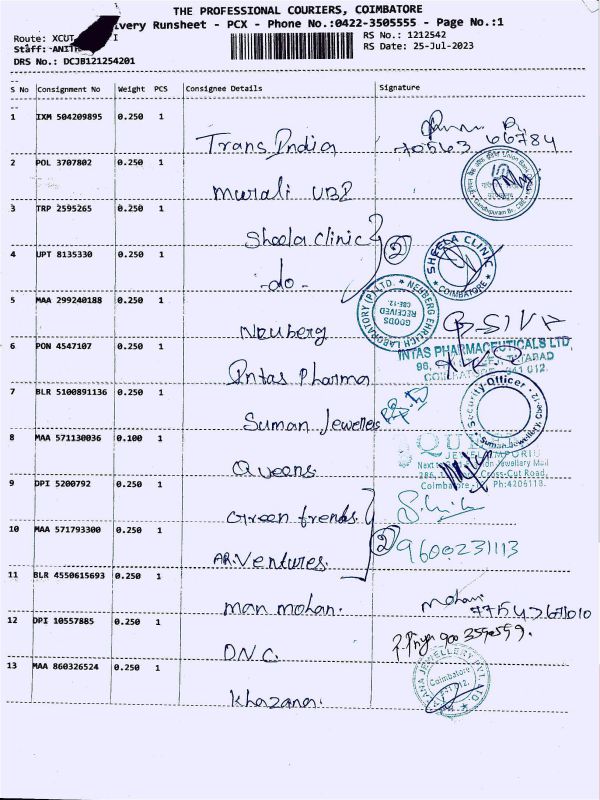 THE PROFESSIONAL COURIERS, COIMBATORE
ivery Runsheet - PCX - Phone No.:0422-3505555 - Page No.:1
Route: XCUT I
RS No.: 1212542
Staff: ANITH
RS Date: 25-Jul-2023
DRS No.: DCJB121254201
S No Consignment No Weight PCS Consignee Details Signature
1 IXM 504209895 0.250 1
Trans India
70563 66784
2 POL 3707802 0.250 1
Murali UBI
3 TRP 2595265 0.250 1
Sheela Clinic
2
SHEELA CLINIC
* COIMBATORE *
4 UPT 8135330 0.250 1
-do-
NEUBERG EHRLICH LABORATORY (P) LTD.
GOODS
RECEIVED
CBE-12.
5 MAA 299240188 0.250 1
Neuberg
SIVA
6 PON 4547107 0.250 1
Intas Pharma
INTAS PHARMACEUTICALS LTD,
7 BLR 5100891136 0.250 1
Suman Jewelles
Security Officer
Suman Jewellery, Cbe-12
8 MAA 571130036 0.100 1
Queens
JEWEL EMPORIU
Jewellery Mall
Cross-Cut Road,
Coimbatore Ph:4206118.
9 DPI 5200792 0.250 1
Green trends.
10 MAA 571793300 0.250 1
AR.Ventures.
2
9600231113
11 BLR 4550615693 0.250 1
man mohan.
Mohan
12 DPI 10557885 0.250 1
D.N.C.
13 MAA 860326524 0.250 1
Khazana.
JEWELLERY PVT. LTD.
Coimbatore